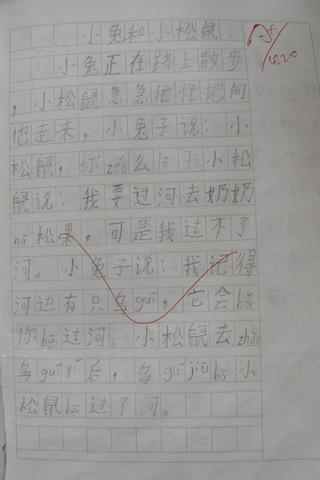 小兔和小松鼠
小兔正在路上散步
，小松鼠急急忙忙地向
他走来，小兔子说：小
松鼠，你zěn么了？小松
鼠说：我要过河去奶奶
ná松果，可是我过不了
河。小兔子说：我记得
河边有只乌guī，它会bāi
你bāi过河。小松鼠去zhǎo
乌guī yǐ后，乌guī jiù bāi小
松鼠bāi过了河。
4.20